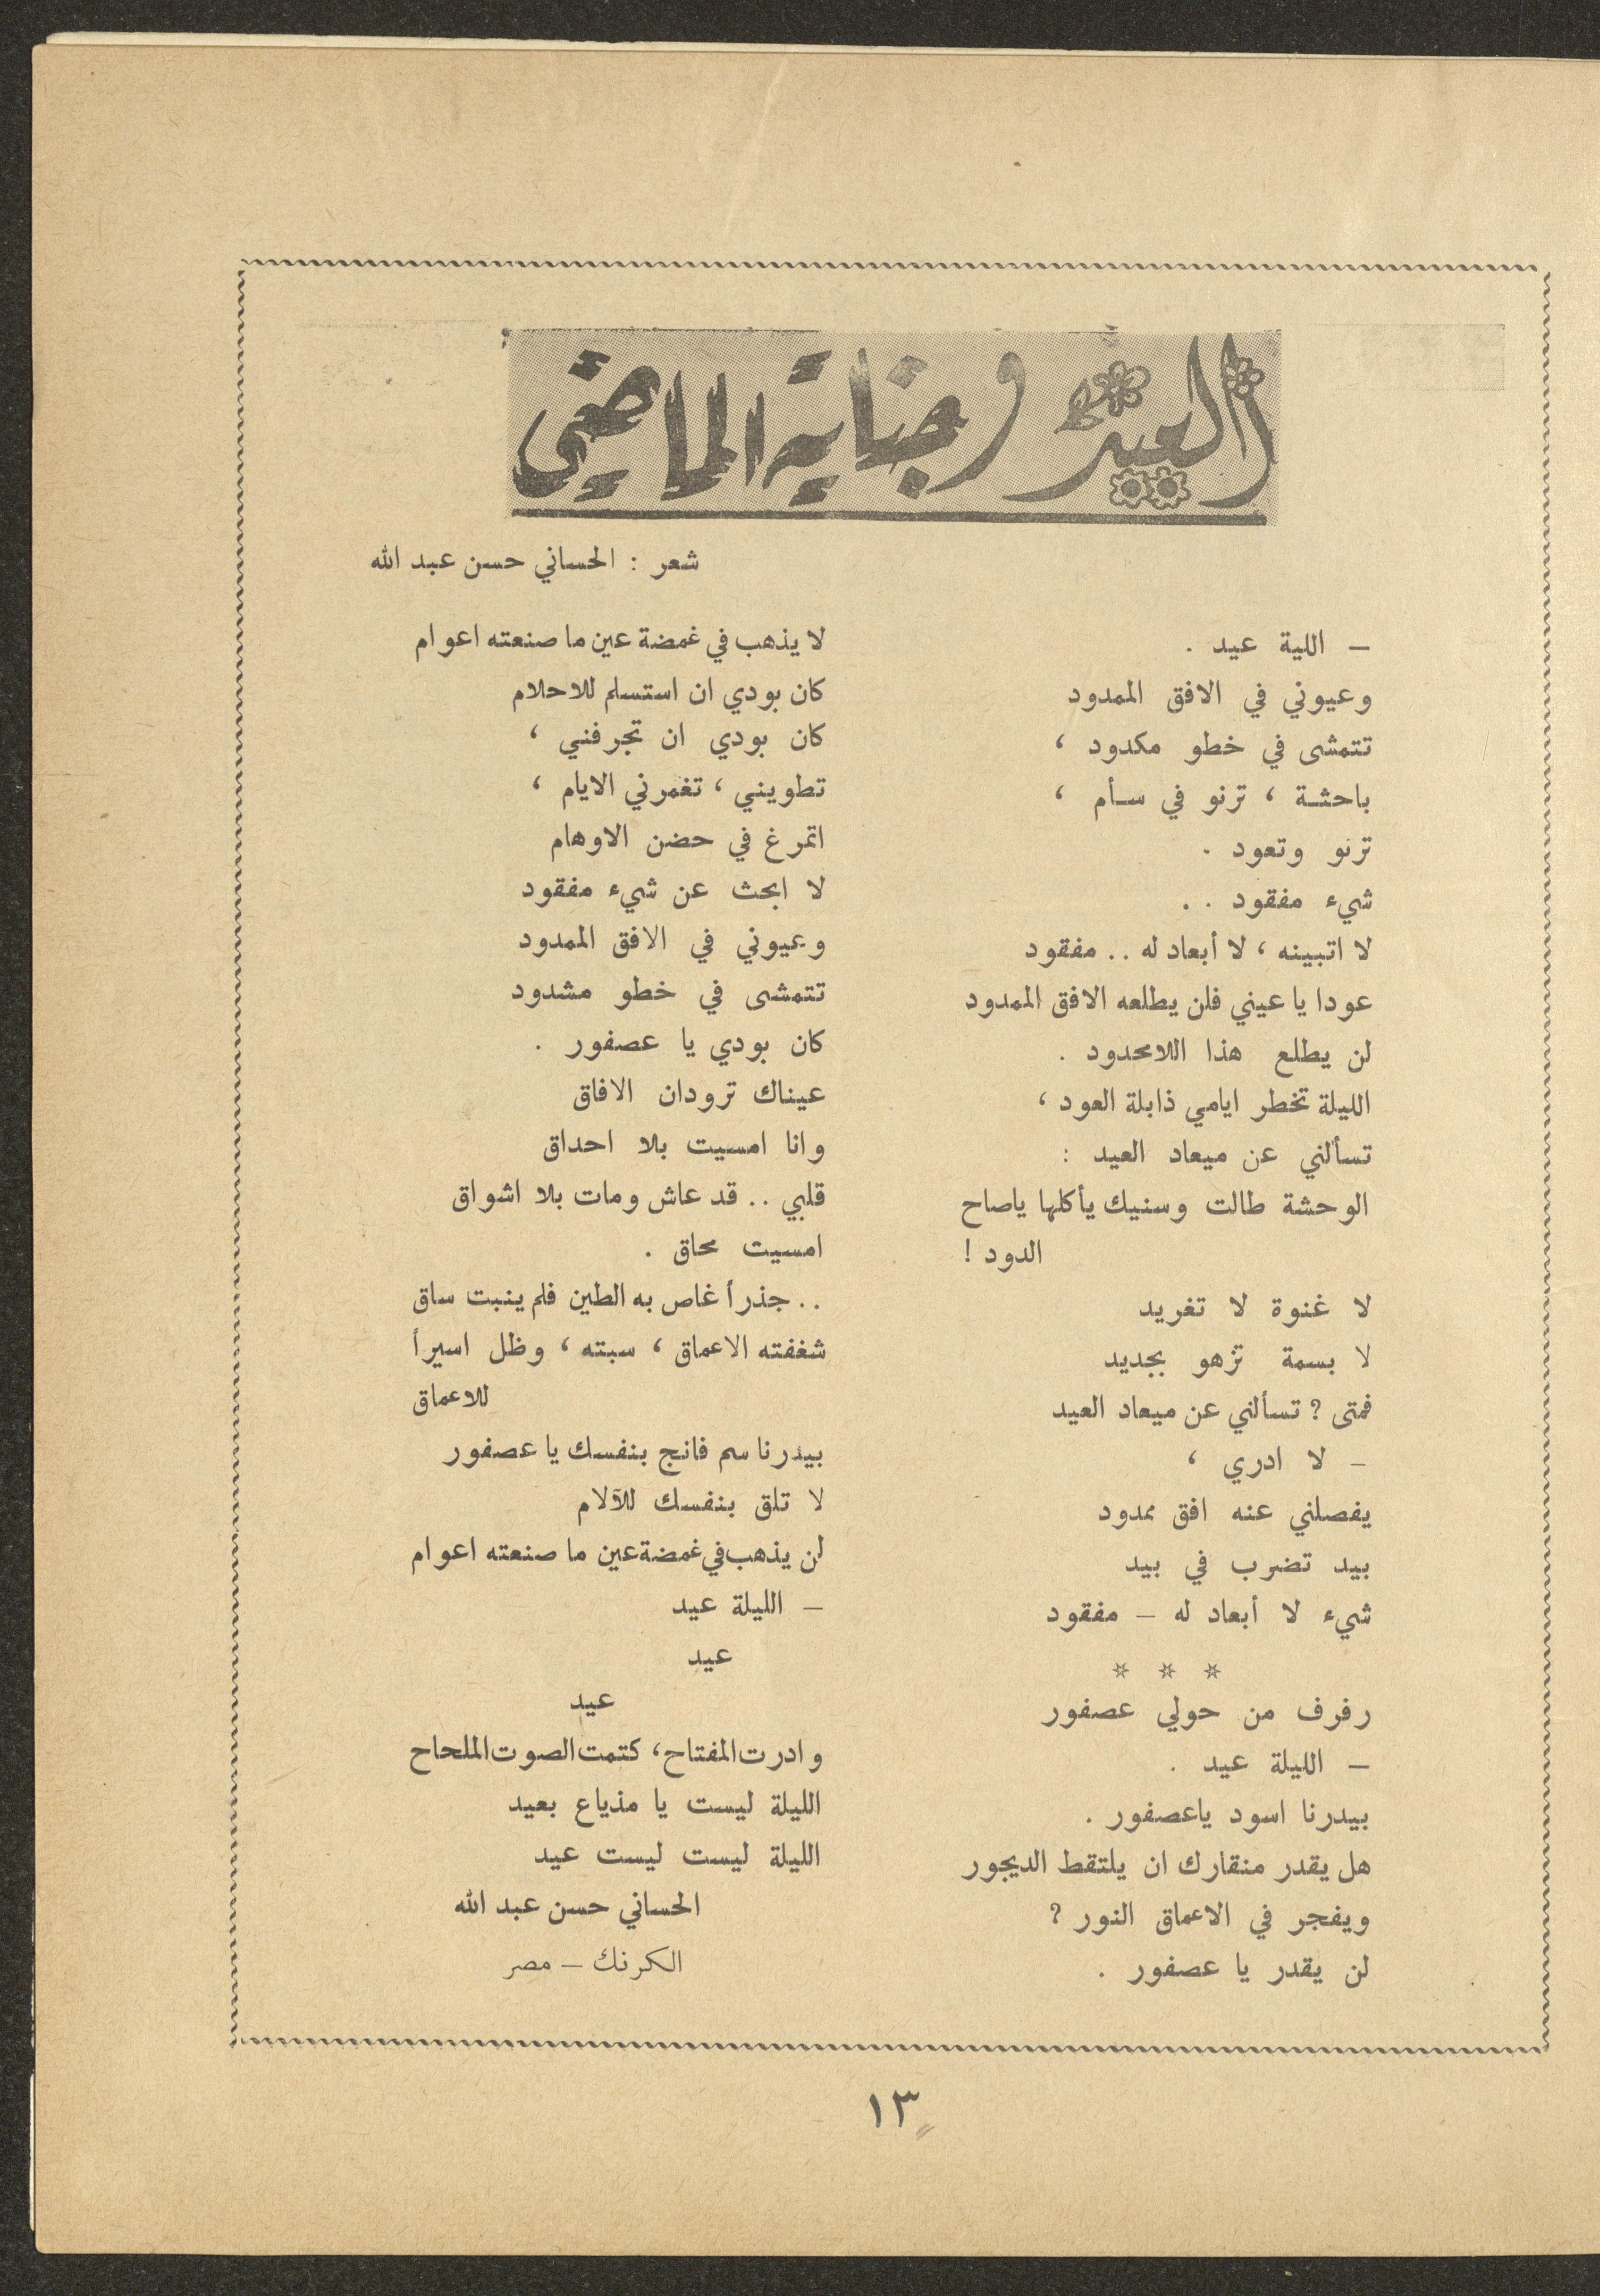 العيد وجناية الماضي
شعر : الحساني حسن عبد الله
— اللية عيد .
وعيوني في الافق الممدود
تتمشى في خطو مكدود ،
باحثـة ، ترنو في سـأم ،
ترنو وتعود .
شيء مفقود . .
لا اتبينه ، لا أبعاد له . . مفقود
عودا يا عيني فلن يطلعه الافق الممدود
لن يطلع هذا اللامحدود .
الليلة تخطر ايامي ذابلة العود ،
تسألني عن ميعاد العيد :
الوحشة طالت وسنيك يأكلها ياصاح
الدود !
لا غنوة لا تغريد
لا بسمة تزهو بجديد
فمتى ؟ تسألني عن ميعاد العيد
– لا ادري ،
يفصلني عنه افق ممدود
بيد تضرب في بيد
شيء لا أبعاد له – مفقود
* * *
رفرف من حولي عصفور
— الليلة عيد .
بيدرنا اسود ياعصفور .
هل يقدر منقارك ان يلتقط الديجور
ويفجر في الاعماق النور ؟
لن يقدر يا عصفور .
لا يذهب في غمضة عين ما صنعته اعوام
كان بودي ان استسلم للاحلام
كان بودي ان تجرفني ،
تطويني ، تغمرني الايام ،
اتمرغ في حضن الاوهام
لا ابحث عن شيء مفقود
وعيوني في الافق الممدود
تتمشى في خطو مشدود
كان بودي يا عصفور .
عيناك ترودان الافاق
وانا امسيت بلا احداق
قلبي . . قد عاش ومات بلا اشواق
امسيت محاق .
. . جذراً غاص به الطين فلم ينبت ساق
شغفته الاعماق ، سبته ، وظل اسيراً
للاعماق
بيدرنا سم فانج بنفسك يا عصفور
لا تلق بنفسك للآلام
لن يذهب في غمضة عين ما صنعته اعوام
— الليلة عيد
عيد
عيد
وادرت المفتاح ، كتمت الصوت الملحاح
الليلة ليست يا مذياع بعيد
الليلة ليست ليست عيد
الحساني حسن عبد الله
الكرنك – مصر
١٣